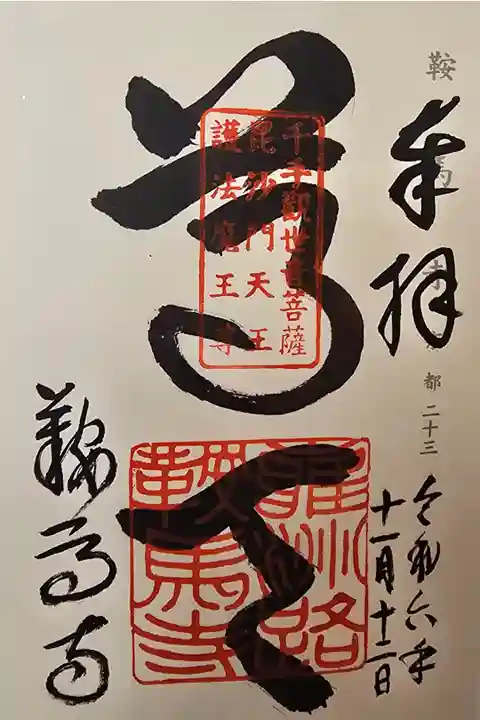 鞍馬寺
都 二十三
奉拝
令和六年
十一月十二日
千手觀世音菩薩
毘沙門天王
護法魔王尊
尊天
雍州路
鞍馬寺
鞍馬寺